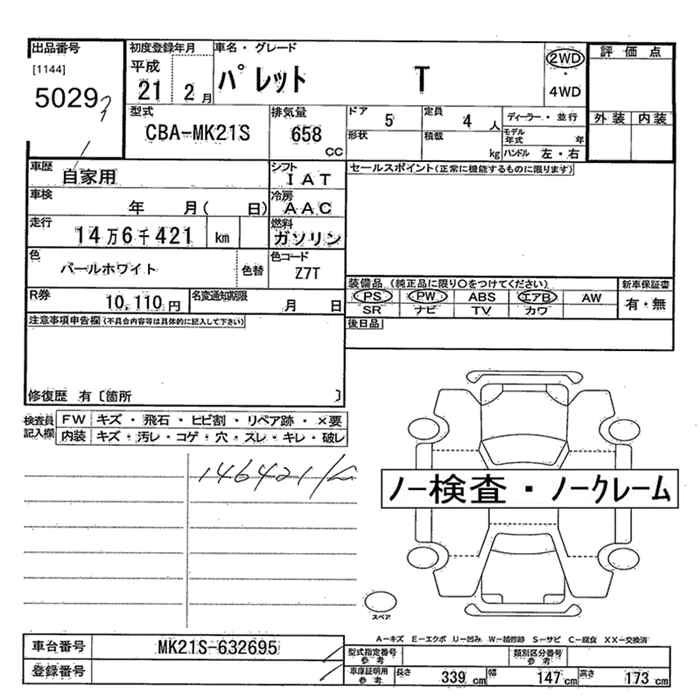 出品番号 初度登録年月 車名・グレード 評価点
[1144] 平成 パレット T 2WD
50297 21 2月 ・ 4WD
型式 排気量 ドア 5 定員 4人 ディーラー・並行 外装 内装
CBA-MK21S 658 CC 形状 積載 kg モデル年式 年
ハンドル 左・右
車歴 自家用 シフト IAT セールスポイント(正常に機能するものに限ります)
車検 年 月( 日) 冷房 AAC
走行 14万6千421 km 燃料 ガソリン
色 パールホワイト 色替 色コード Z7T
装備品 (純正品に限り○をつけてください) 新車保証書
R券 10,110円 名変通知期限 月 日 PS PW ABS エアB AW 有・無
SR ナビ TV カワ
注意事項申告欄(不具合内容等は具体的に記入して下さい) 後日品
修復歴 有〔箇所 〕
検査員記入欄 FW キズ・飛石・ヒビ割・リペア跡・×要
内装 キズ・汚レ・コゲ・穴・スレ・キレ・破レ
146421k
ノー検査・ノークレーム
スペア
A-キズ E-エクボ U-凹み W-補修跡 S-サビ C-腐食 XX-交換済
車台番号 MK21S-632695 型式指定番号 参考 類別区分番号 参考
登録番号 車庫証明用 参考 長さ 339 cm 幅 147 cm 高さ 173 cm